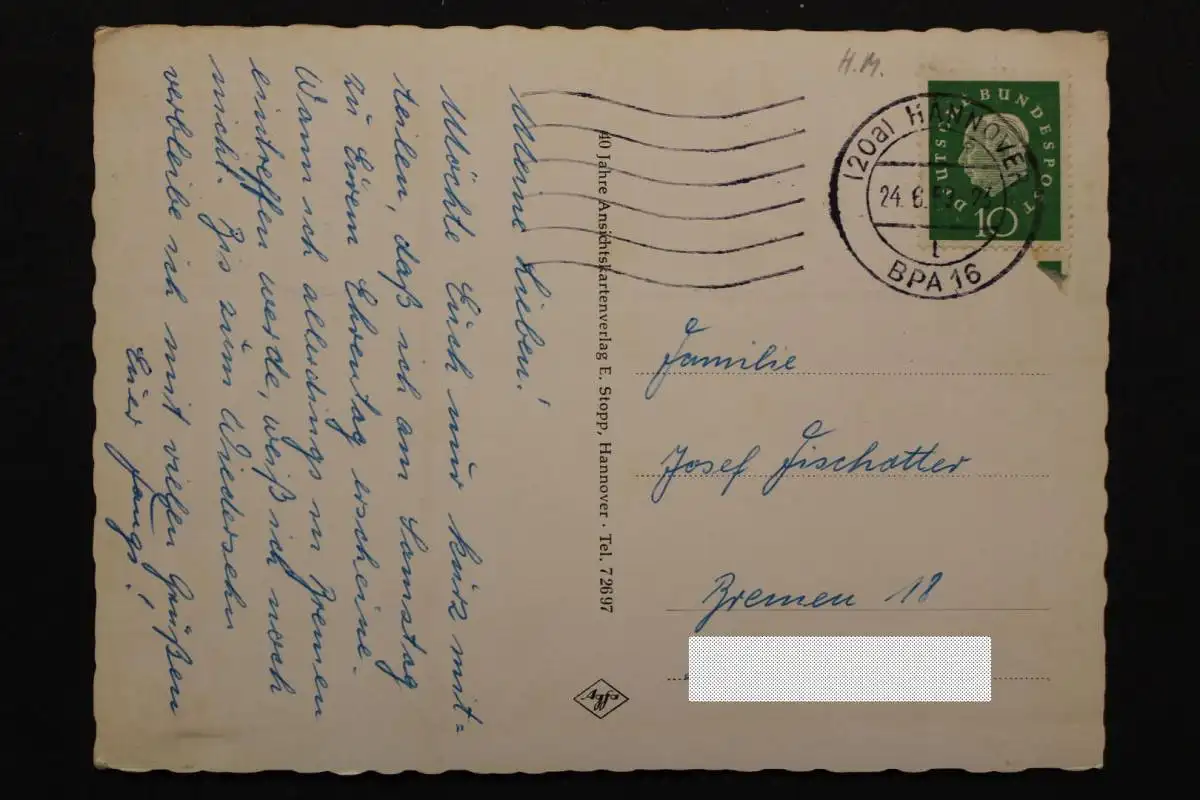 Meine Lieben!
Möchte Euch nur kurz mit=
teilen, daß ich am Samstag
zu Eurem Ehrentag erscheine.
Wann ich allerdings in Bremen
eintreffen werde, weiß ich noch
nicht. Bis zum Wiedersehn
verbleibe ich mit vielen Grüßen
Euer
40 Jahre Ansichtskartenverlag E. Stopp, Hannover · Tel. 7 26 97
Agfa
H.M.
DEUTSCHE BUNDESPOST
10
(20a) HANNOVER
24. 6. 59.
t
BPA 16
Familie
Josef Fischötter
Bremen 18